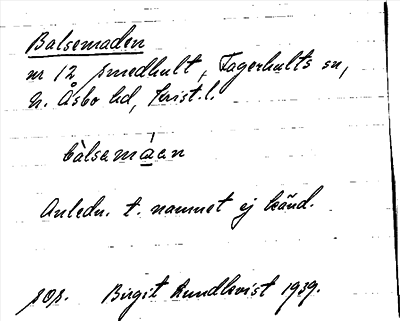 Balsemaden
nr 12 Smedhult, Fagerhults sn,
N. Åsbo hd, Krist. l.
bàlsemáen
Anledn. t. namnet ej känd.
sos. Birgit Rundkvist 1939.